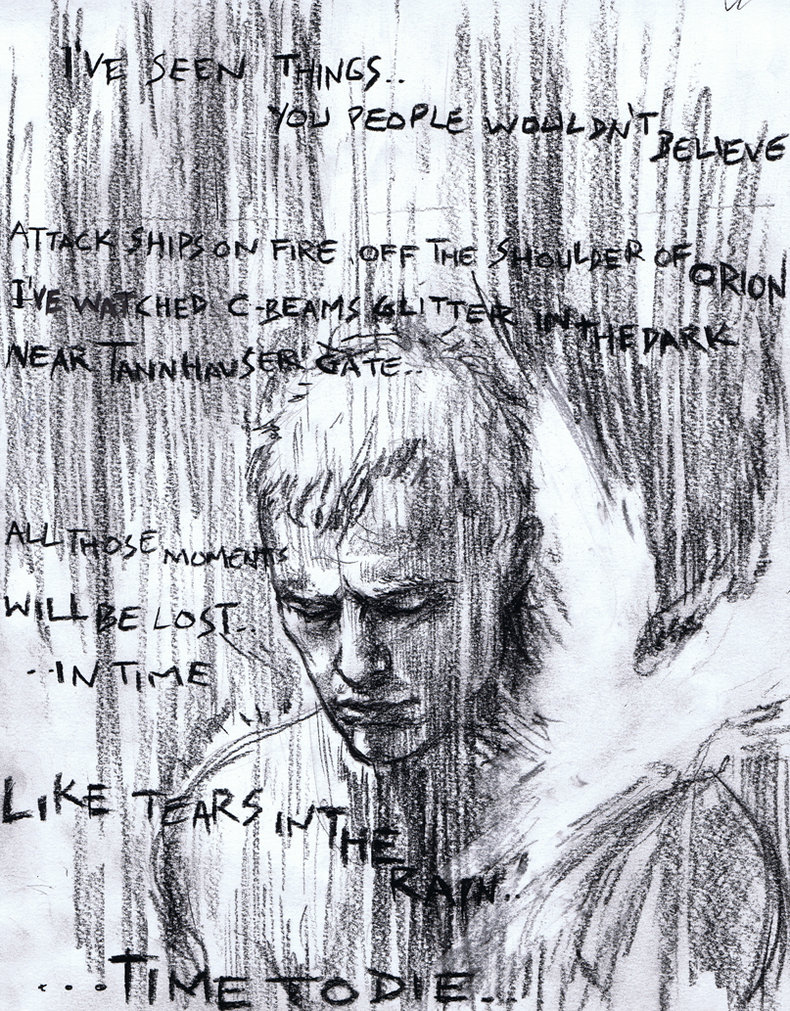 I'VE SEEN THINGS..
YOU PEOPLE WOULDN'T BELIEVE
ATTACK SHIPS ON FIRE OFF THE SHOULDER OF ORION
I'VE WATCHED C-BEAMS GLITTER IN THE DARK
NEAR TANNHAUSER GATE..
ALL THOSE MOMENTS
WILL BE LOST..
..IN TIME
LIKE TEARS IN THE
RAIN..
...TIME TO DIE...